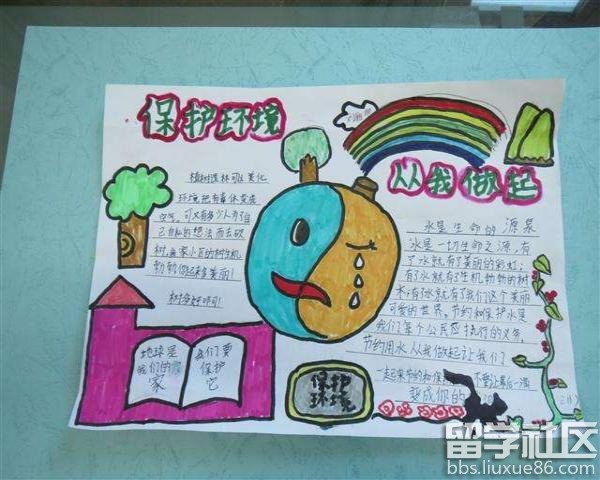 保护环境
从我做起
植树造林可以美化
环境,把有毒体变成
空气,可又有多少人为了自
己自私的想法而去砍
树
树多好呀!
水是生命的源泉
水是一切生命之源,有
了水就有了美丽的彩虹;
有了水就有了生机勃勃的树
木;有了水就有了我们这个美丽
可爱的世界。节约和保护水是
我们每个公民应执行的义务,
节约用水从我做起让我们
一起来节约和保
不要让最后一滴
变成你的
地球是
我们的
家
我们要
保护
它
保护
环境
留学社区
bbs.liuxue86.com